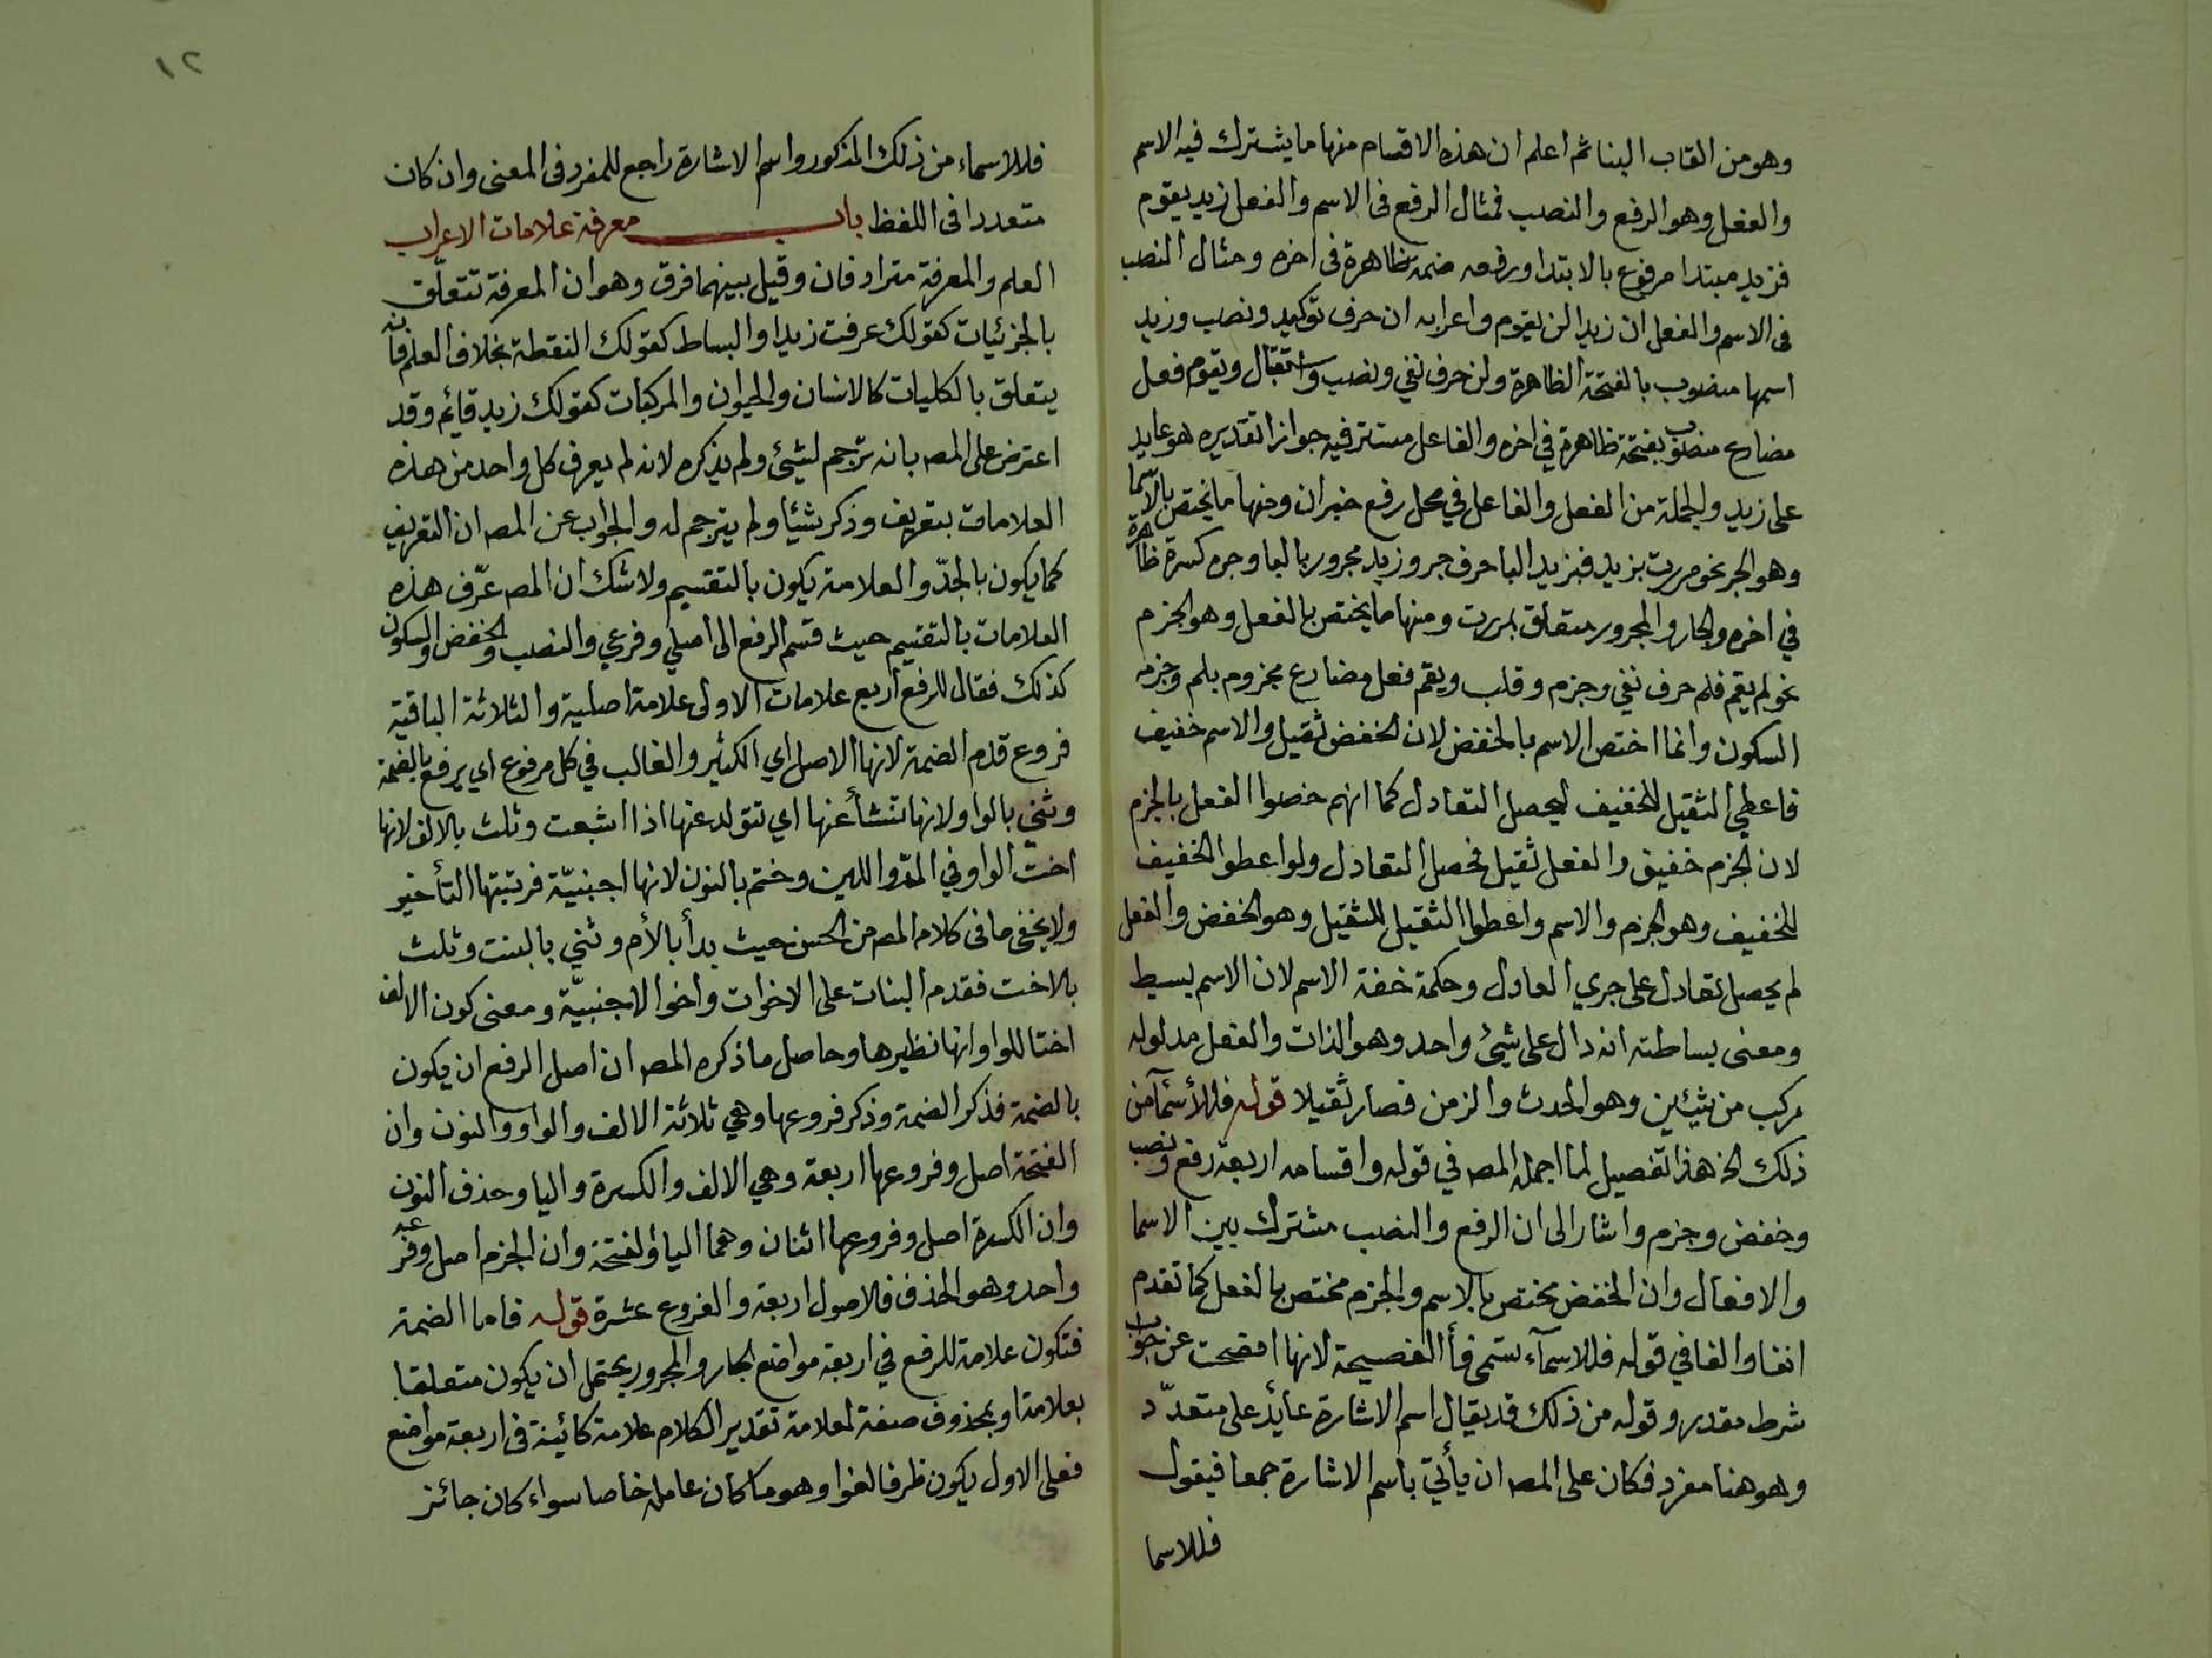 وهو من القاب البنا ثم اعلم ان هذه الاقسام منها ما يشترك فيه الاسم
والفعل وهو الرفع والنصب فمثال الرفع فى الاسم والفعل زيد يقوم
فزيد مبتدا مرفوع بالابتدا ورفعه ضمه ظاهرة فى اخره ومثال النصب
فى الاسم والفعل ان زيدا لن يقوم واعرابه ان حرف توكيد ونصب وزيد
اسمها منصوب بالفتحة الظاهرة ولن حرف نفي ونصب واستقبال ويقوم فعل
مضارع منصوب بفتحة ظاهرة في اخره والفاعل مستتر فيه جوازا تقديره هو عايد
على زيد والجملة من الفعل والفاعل في محل رفع خبر ان ومنها ما يختص بالاسما
وهو الجر نحو مررت بزيد فبزيد البا حرف جر وزيد مجرور بالبا وجره كسرة ظاهرة
في اخره والجار والمجرور متعلق بمررت ومنها ما يختص بالفعل وهو الجزم
نحو لم يقم فلم حرف نفي وجزم وقلب ويقم فعل مضارع مجزوم بلم وجزمه
السكون وانما اختص الاسم بالخفض لان الخفض ثقيل والاسم خفيف
فاعطي الثقيل للخفيف ليحصل التعادل كما انهم خصوا الفعل بالجزم
لان الجزم خفيف والفعل ثقيل فحصل التعادل ولو اعطوا الخفيف
للخفيف وهو الجزم والاسم واعطوا الثقيل للثقيل وهو الخفض والفعل
لم يحصل تعادل على جري العادل وحكمة خفة الاسم لان الاسم بسيط
ومعنى بساطته انه دال على شيئ واحد وهو الذات والفعل مدلوله
مركب من شيئين وهو الحدث والزمن فصار ثقيلا قوله فللأسمآ من
ذلك الخ هذا تفصيل لما اجمله المص في قوله واقسامه اربعة رفع ونصب
وخفض وجزم واشار الى ان الرفع والنصب مشترك بين الاسما
والافعال وان الخفض مختص بالاسم والجزم مختص بالفعل كما تقدم
انفا والفا في قوله فللاسمآء تسمى فأ الفصيحة لانها افصحت عن جواب
شرط مقدر وقوله من ذلك قد يقال اسم الاشارة عايد على متعدّد
وهو هنا مفرد فكان على المص ان يأتي باسم الاشارة جمعا فيقول
فللاسما
١٢
فللاسماء من ذلك المذكور واسم الاشارة راجع للمفرد فى المعنى وان كان
متعددا فى اللفظ باب معرفة علامات الاعراب
العلم والمعرفة مترادفان وقيل بينهما فرق وهو ان المعرفة تتعلّق
بالجزئيات كقولك عرفت زيدا والبساط كقولك النقطة بخلاف العلم فانه
يتعلق بالكليات كالانسان والحيوان والمركبات كقولك زيد قائم وقد
اعترض على المص بانه ترجم لشيئ ولم يذكره لانه لم يعرف كل واحد من هذه
العلامات بتعريف وذكر شيئا ولم يترجم له والجواب عن المص ان التعريف
كما يكون بالحدّ والعلامة يكون بالتقسيم ولا شك ان المص عرّف هذه
العلامات بالتقسيم حيث قسم الرفع الى اصلي وفرعي والنصب والخفض والسكون
كذلك فقال للرفع اربع علامات الاولى علامة اصلية والثلاثة الباقية
فروع قدم الضمة لانها الاصل اي الكثير والغالب في كل مرفوع اي يرفع بالضمة
وثني بالواو لانها تنشأ عنها اي تتولد عنها اذا اشبعت وثلث بالالف لانها
اخت الواو في المدّ واللين وختم بالنون لانها اجنبيّة فرتبتها التأخير
ولا يخفى ما فى كلام المص من الحسن حيث بدأ بالأم وثني بالبنت وثلث
بالاخت فقدم البنات على الاخوات واخوا الاجنبيّة ومعنى كون الالف
اختا للواو انها نظيرها وحاصل ما ذكره المص ان اصل الرفع ان يكون
بالضمة فذكر الضمة وذكر فروعها وهي ثلاثة الالف والواو والنون وان
الفتحة اصل وفروعها اربعة وهي الالف والكسرة واليا وحذف النون
وان الكسرة اصل وفروعها اثنان وهما اليا والفتحة وان الجزم اصل وفرعه
واحد وهو الحذف فالاصول اربعة والفروع عشرة قوله فاما الضمة
فتكون علامة للرفع في اربعة مواضع الجار والمجرور يحتمل ان يكون متعلقا
بعلامة او بمحذوف صفة لعلامة تقدير الكلام علامة كائينة فى اربعة مواضع
فعلى الاول يكون ظرفا لغوا وهو ما كان عامله خاصا سواء كان جائز